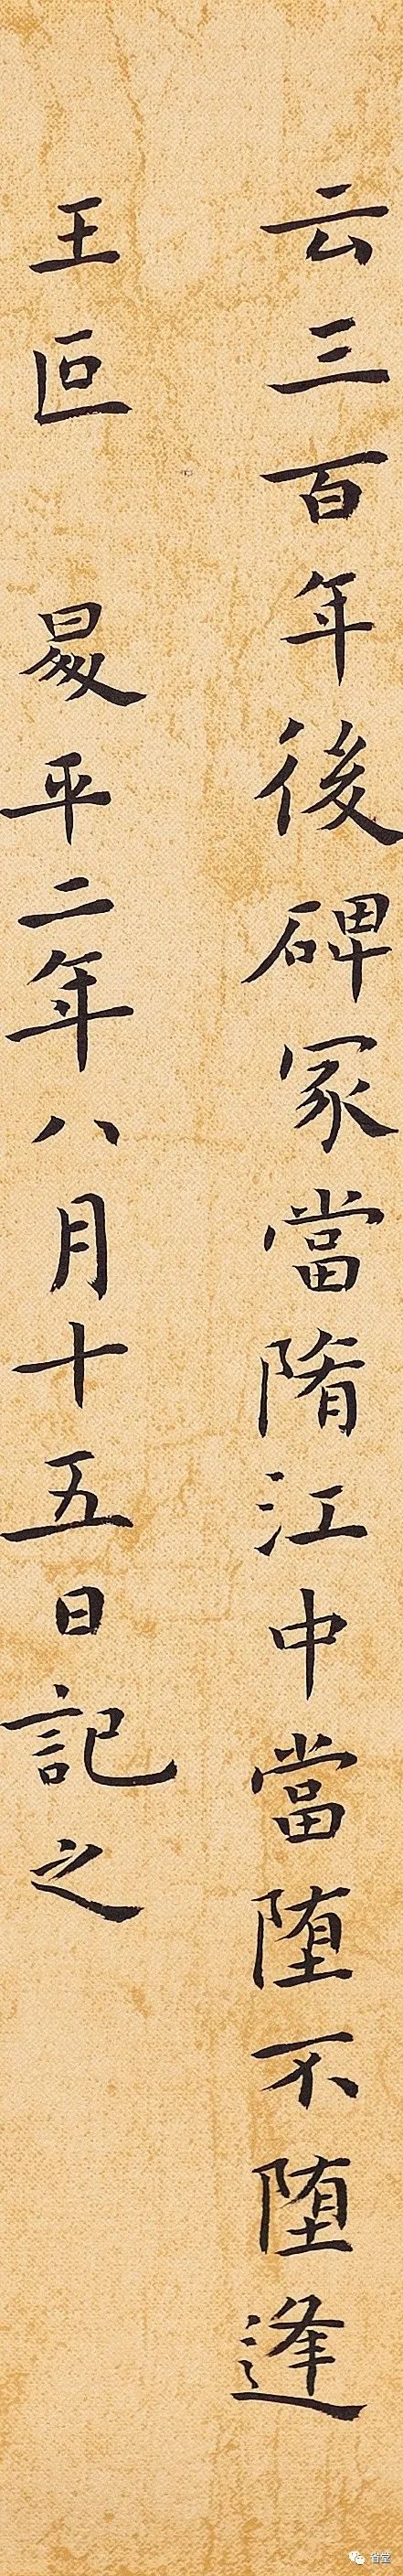 云三百年後碑冢當陏江中當堕不堕逢
王叵 平二年八月十五日記之